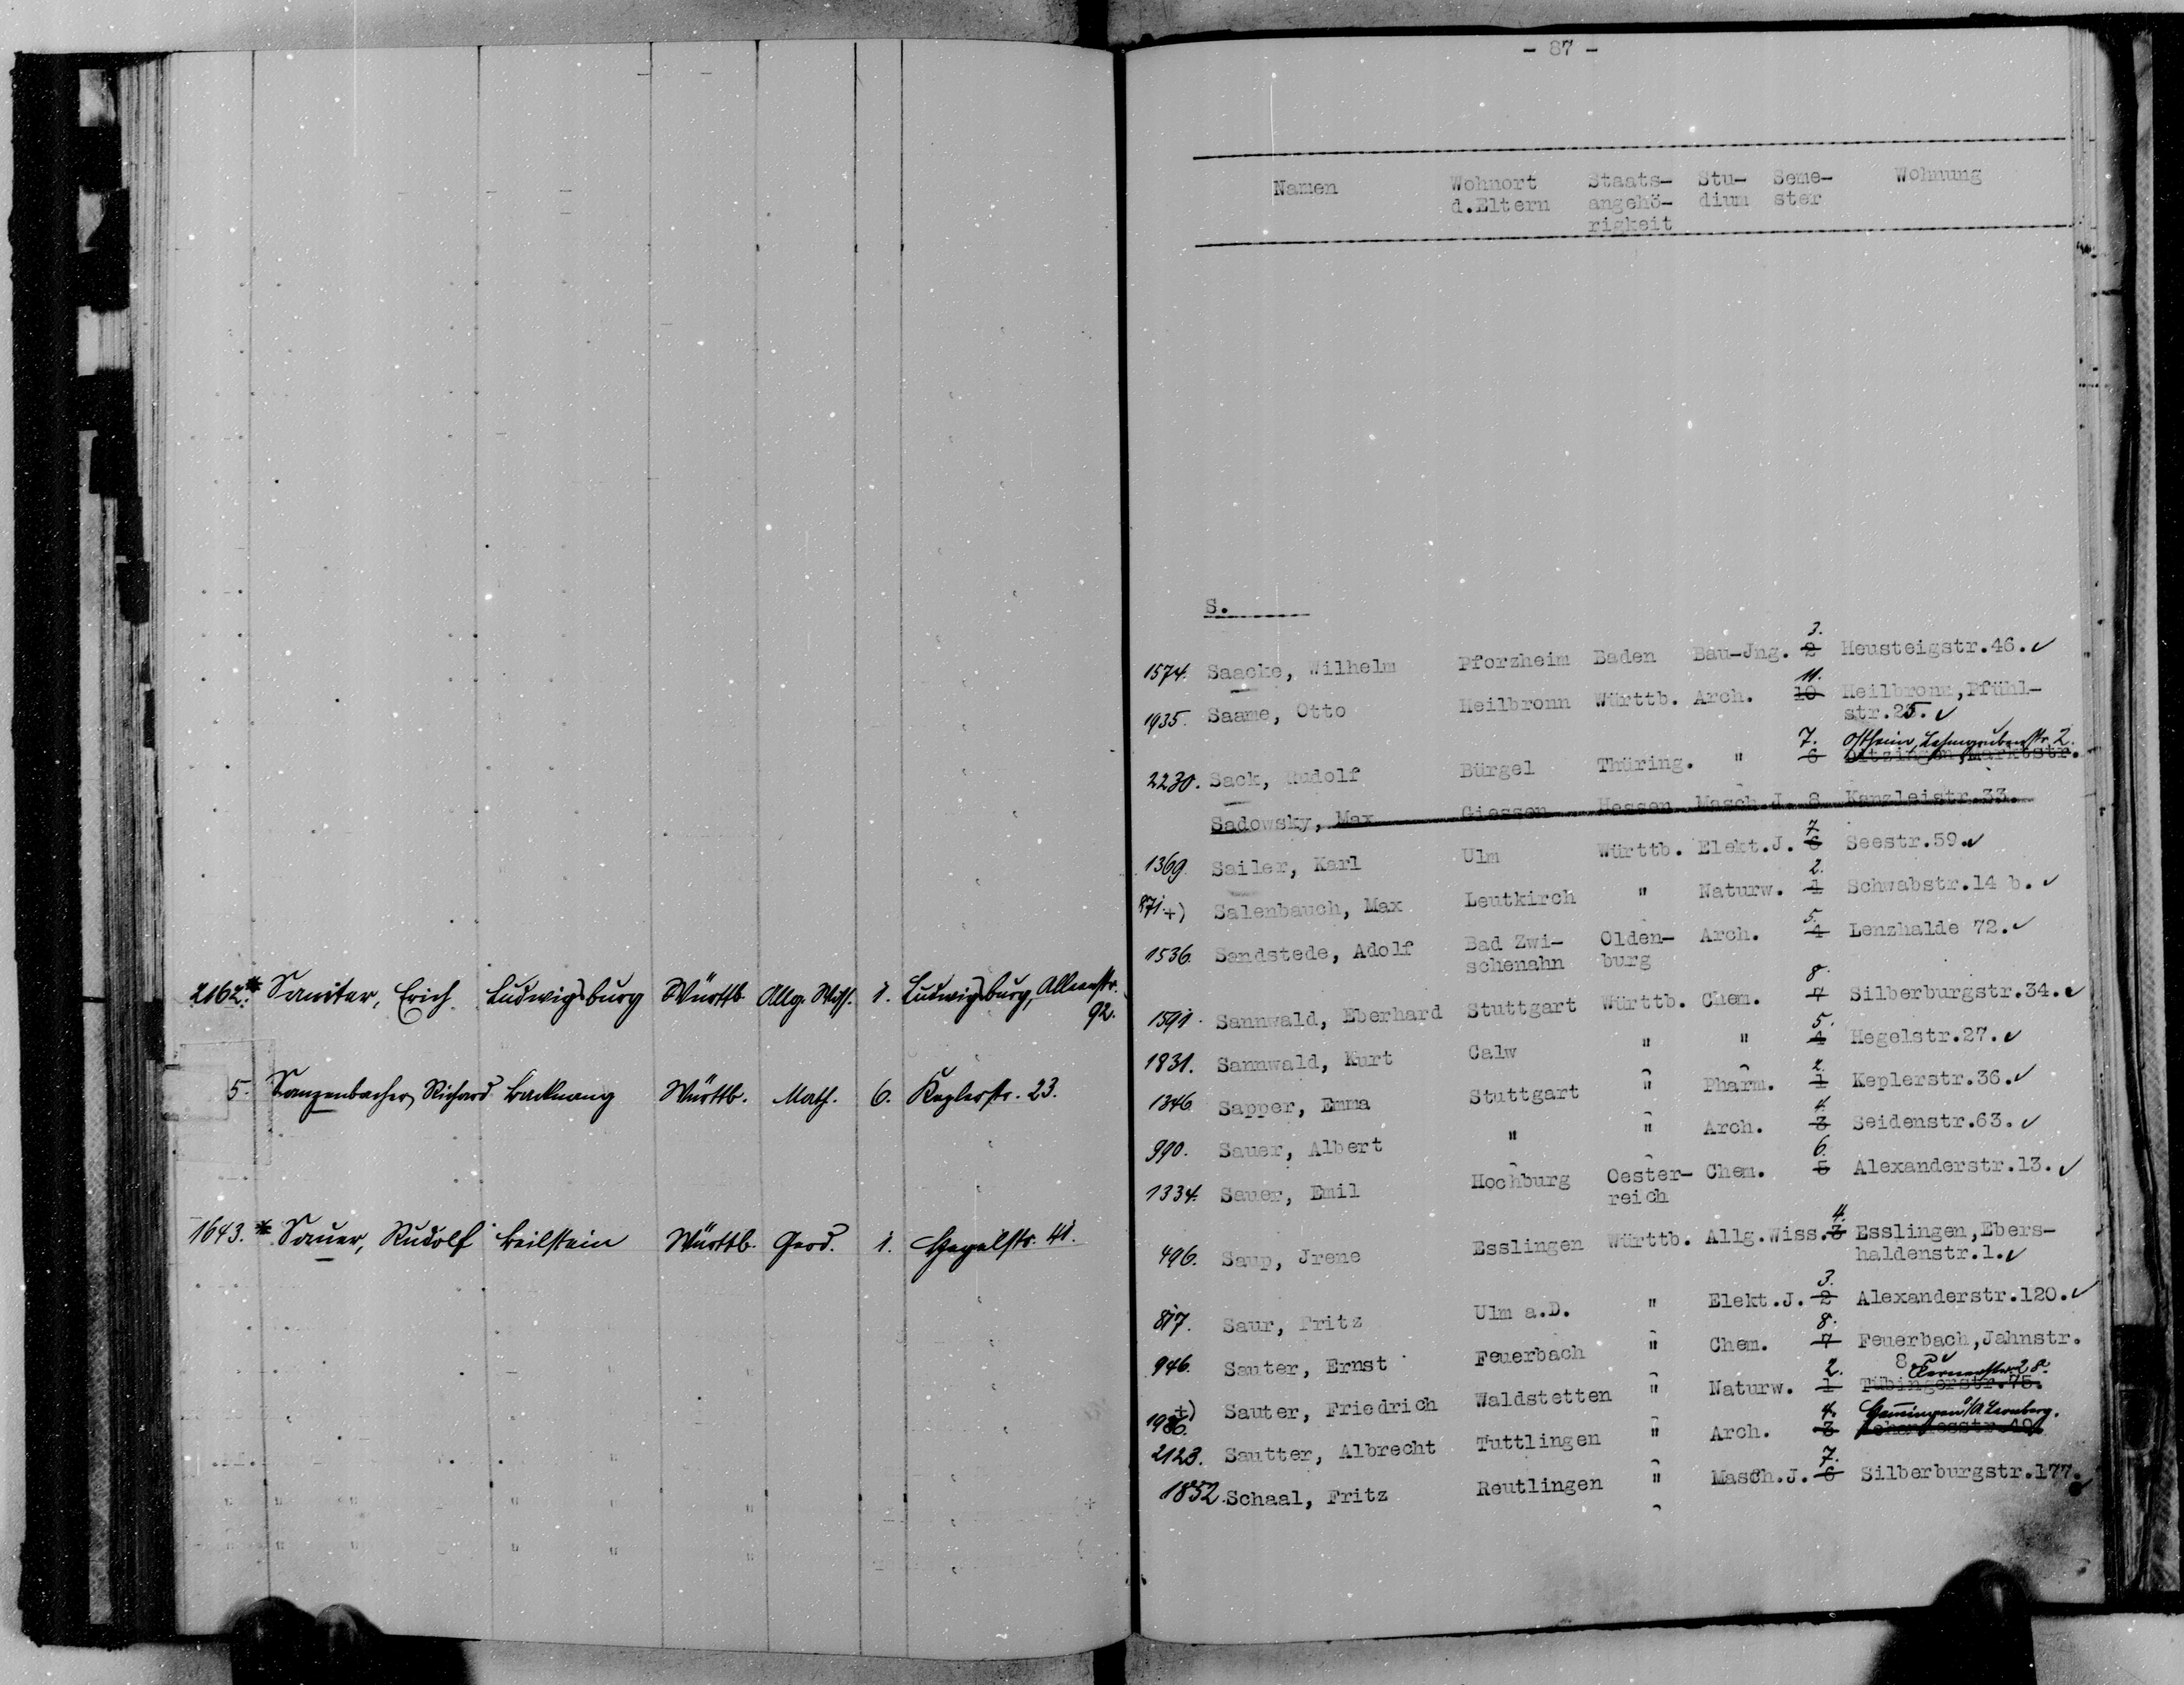 2162.* Saniter, Erich Ludwigsburg Württb. Allg. Wiss. 1. Ludwigsburg, Alleenstr.
92.
5. Sanzenbacher, Richard Backnang Württb. Math. 6. Keplerstr. 23.
1643.* Sauer, Rudolf Beilstein Württb. Geod. 1. Hegelstr. 41.
- 87 -
Namen Wohnort Staats- Stu- Seme- Wohnung
d.Eltern angehö- dium ster
rigkeit
S.
3.
1574. Saacke, Wilhelm Pforzheim Baden Bau-Jng. 2 Heusteigstr.46. ✓
11.
1935. Saame, Otto Heilbronn Württb. Arch. 10 Heilbronn,Pfühl-
str.25. ✓
7. Ostheim, Lehmgrubenstr. 2.
2230. Sack, Rudolf Bürgel Thüring. " 6 Ditzingen,Marktstr.
Sadowsky, Max Giessen Hessen Masch.J. 8 Kanzleistr.33.
7
1369 Sailer, Karl Ulm Württb. Elekt.J. 6 Seestr.59. ✓
2.
871. +) Salenbauch, Max Leutkirch " Naturw. 1 Schwabstr.14 b. ✓
5.
1536. Sandstede, Adolf Bad Zwi- Olden- Arch. 4 Lenzhalde 72. ✓
schenahn burg
8.
1591. Sannwald, Eberhard Stuttgart Württb. Chem. 7 Silberburgstr.34. ✓
5.
1831. Sannwald, Kurt Calw " " 4 Hegelstr.27. ✓
2.
1346 Sapper, Emma Stuttgart " Pharm. 1 Keplerstr.36. ✓
4.
990. Sauer, Albert " " Arch. 3 Seidenstr.63. ✓
6.
1334. Sauer, Emil Hochburg Oester- Chem. 5 Alexanderstr.13. ✓
reich
4.
496. Saup, Jrene Esslingen Württb. Allg.Wiss. 3 Esslingen,Ebers-
haldenstr.1. ✓
3.
817. Saur, Fritz Ulm a.D. " Elekt.J. 2 Alexanderstr.120. ✓
8.
946. Sauter, Ernst Feuerbach " Chem. 7 Feuerbach,Jahnstr.
8 ✓
2. Kernerstr. 2 a.
+) 1986. Sauter, Friedrich Waldstetten " Naturw. 1 Tübingerstr.75.
4. Gemmingen O/A Leonberg.
2123. Sautter, Albrecht Tuttlingen " Arch. 3
7.
1852. Schaal, Fritz Reutlingen " Masch.J. 6 Silberburgstr.177. ✓